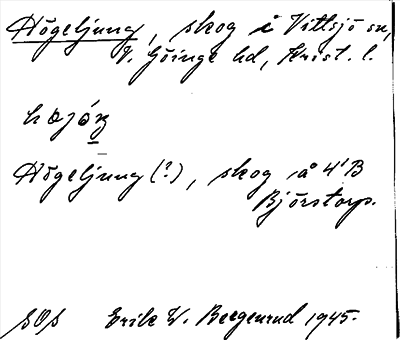 Högeljung, skog i Vittsjö sn,
V. Göinge hd, Krist. l.
Högeljung (?), skog å 4¹B
Björstorp.
SOS Erik W. Bergenrud 1945.